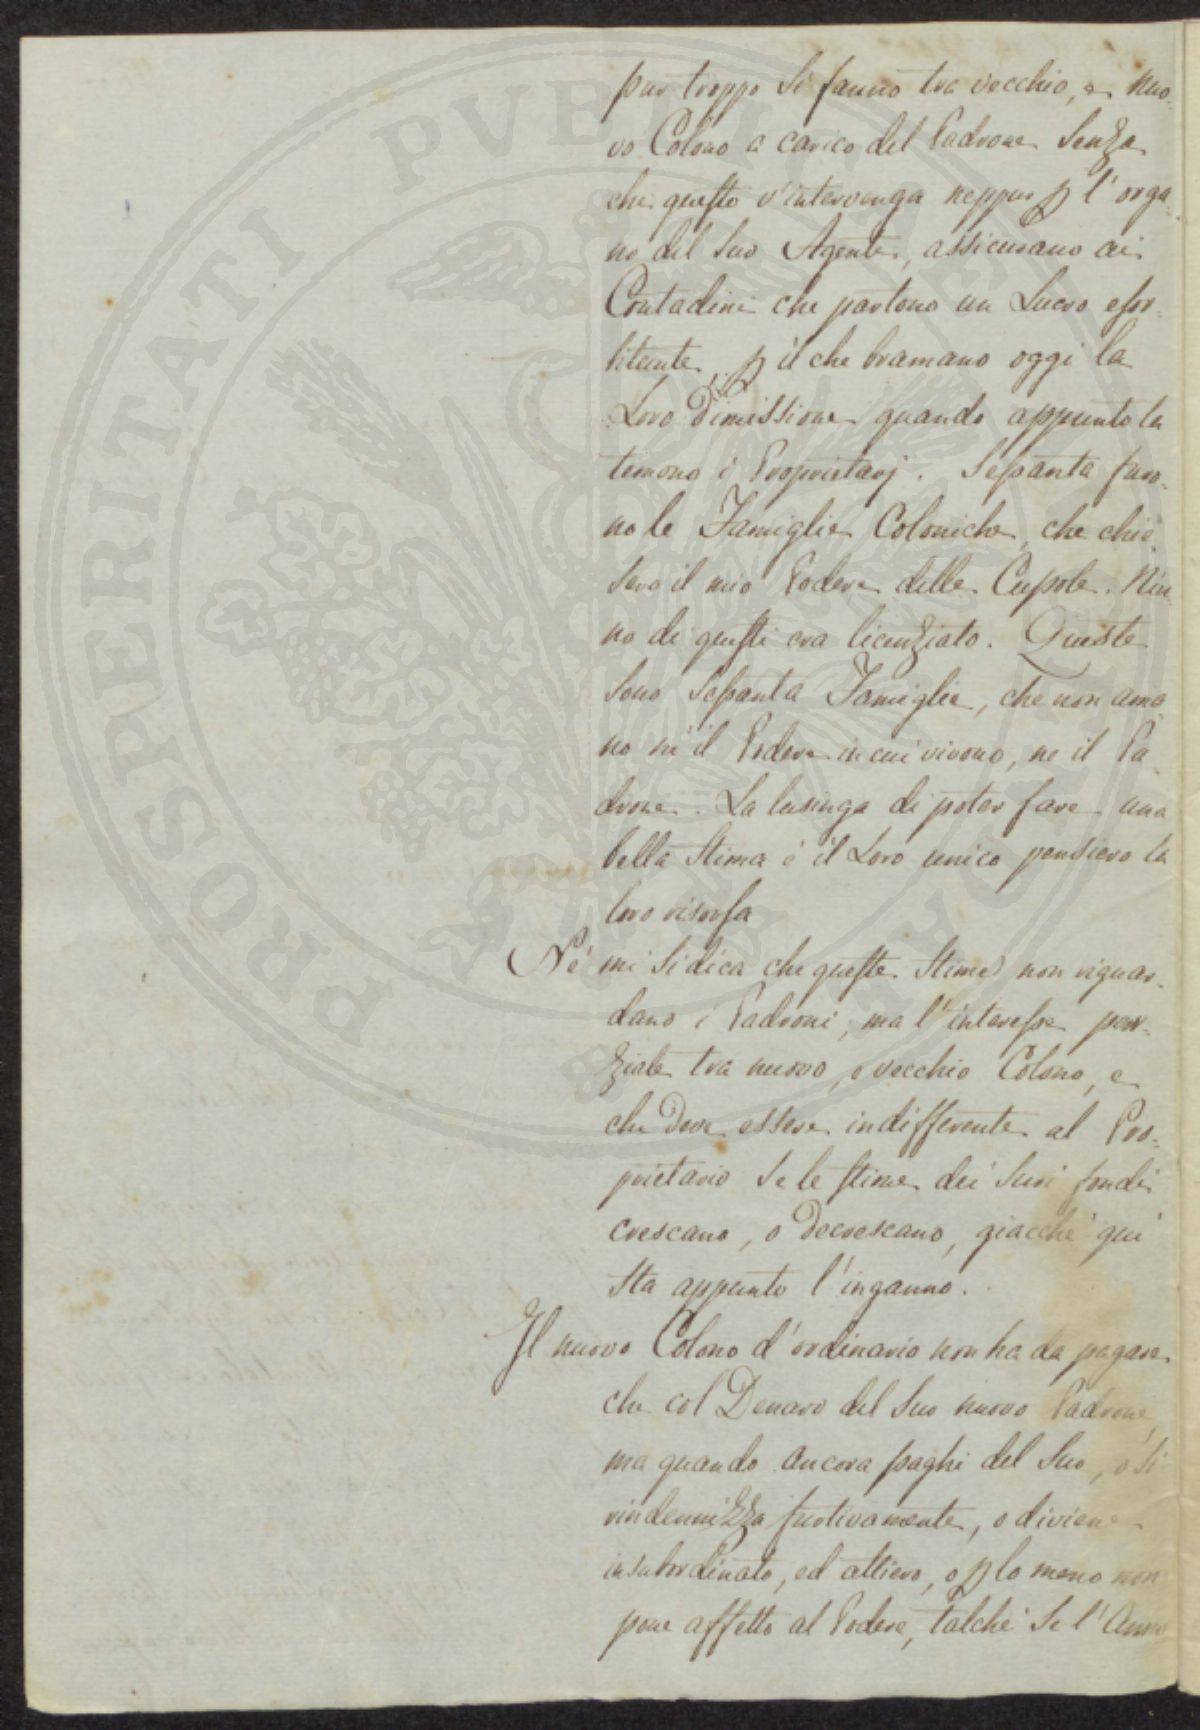 pur troppo si fanno tra vecchio, e nuo-
vo Colono a carico del Padrone senza
che questo v'intervenga neppur p l'orga-
no del suo Agente, assicurano ai
Contadini che partono un Lucro esor-
bitante, p il che bramano oggi la
Loro dimissione quando appunto la
temono i Proprietarj. Sessanta furo-
no le Famiglie Coloniche, che chie-
sero il mio Podere delle Cupole. Niu-
no di questi era licenziato. Queste
sono Sessanta Famiglie, che non ama-
no nè il Podere in cui vivono, ne il Pa-
drone. La lusinga di poter fare una
bella Stima è il Loro unico pensiero la
loro risorsa
Nè mi si dica che queste Stime non riguar-
dano i Padroni, ma l'interesse par-
ziale tra nuovo, e vecchio Colono, e
che deve essere indifferente al Pro-
prietario se le stime dei suoi fondi
crescano, o decrescano, giacchè qui
sta appunto l'inganno.
Il nuovo Colono d'ordinario non ha da pagare
che col Denaro del suo nuovo Padrone,
ma quando ancora paghi del suo, o si
rindennizza furtivamente, o diviene
insubordinato, ed altiero, o p lo meno non
pone affetto al Podere, talchè se l'Anno
PROSPERITATI PVBLICAE